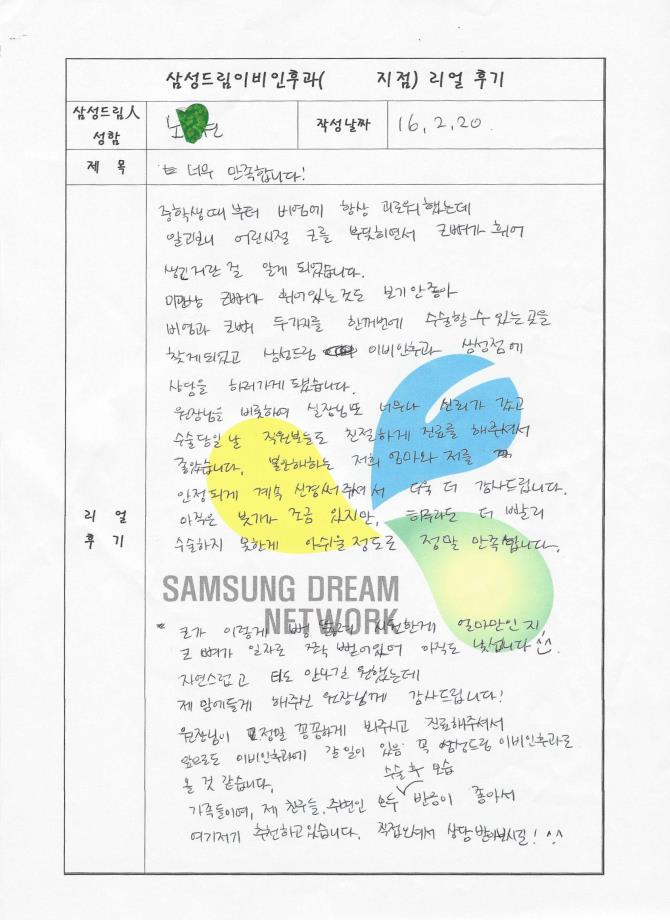 삼성드림이비인후과( 지점) 리얼 후기
삼성드림人 성함
노 원
작성날짜
16. 2. 20.
제 목
너무 만족합니다!
리 얼 후 기
중학생때부터 비염에 항상 괴로워했는데
알고보니 어린시절 코를 부딪히면서 코뼈가 휘어
생긴거란 걸 알게 되었습니다.
미관상 코뼈가 휘어있는것도 보기안좋아
비염과 코뼈 두가지를 한꺼번에 수술할 수 있는 곳을
찾게되었고 삼성드림 이비인후과 삼성점에
상담을 하러가게 됐습니다.
원장님을 비롯하여 실장님또 너무나 신뢰가 갔고
수술당일날 직원분들도 친절하게 진료를 해주셔서
좋았습니다. 불안해하는 저희 엄마와 저를
안정되게 계속 신경써주셔서 더욱 더 감사드립니다.
아직은 붓기가 조금 있지만, 하루라도 더 빨리
수술하지 못한게 아쉬울정도로 정말 만족합니다.
SAMSUNG DREAM
NETWORK
코가 이렇게 뻥 뚫려 시원한게 얼마만인지
코 뼈가 일자로 쭈욱 뻗어있어 아직도 낯섭니다 ^^.
자연스럽고 티도 안나길 원했는데
제 맘에들게 해주신 원장님께 감사드립니다!
원장님이 정말 꼼꼼하게 봐주시고 진료해주셔서
앞으로도 이비인후과에 갈 일이 있음 꼭 삼성드림 이비인후과로
올 것 같습니다.
가족들이며, 제 친구들, 주변인 모두 수술 후 모습 반응이 좋아서
여기저기 추천하고있습니다. 직접오셔서 상담받아보시길! ^^